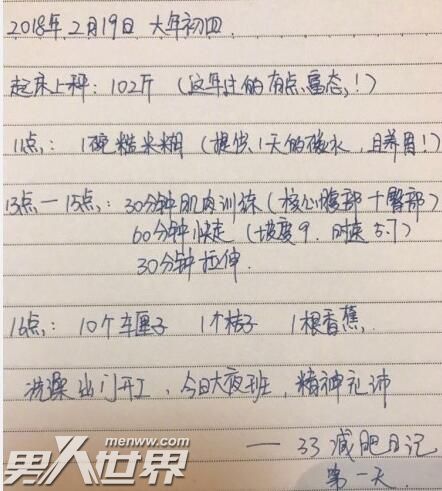 2018年2月19日 大年初四
起床上秤：102斤（这年过的有点富态！）
11点：1碗糙米糊（提供1天的碳水，且养胃！）
13点—15点：30分钟肌肉训练（核心腹部+臀部）
60分钟快走（坡度9，时速5.7）
30分钟拉伸
16点：10个车厘子 1个桔子 1根香蕉
洗澡出门开工，今日大夜班，精神礼沛
——33减肥日记
第一天
menww.com
男人世界